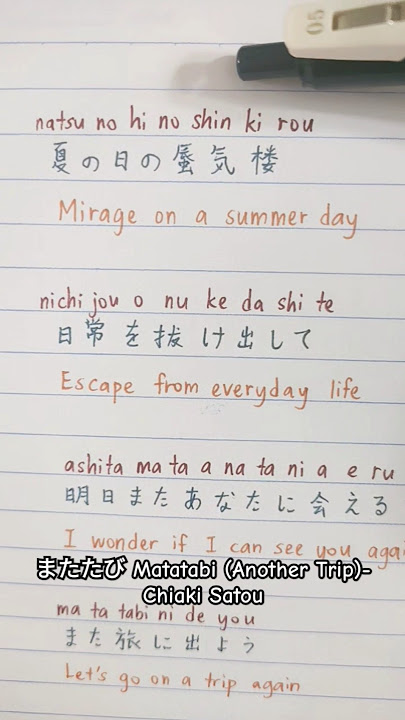 05
natsu no hi no shin ki rou
夏の日の蜃気楼
Mirage on a summer day
nichi jou o nu ke da shi te
日常を抜け出して
Escape from everyday life
ashita ma ta a na ta ni a e ru
明日またあなたに会える
I wonder if I can see you agai
またたび Matatabi (Another Trip)-
Chiaki Satou
ma ta tabi ni de you
また旅に出よう
Let's go on a trip again